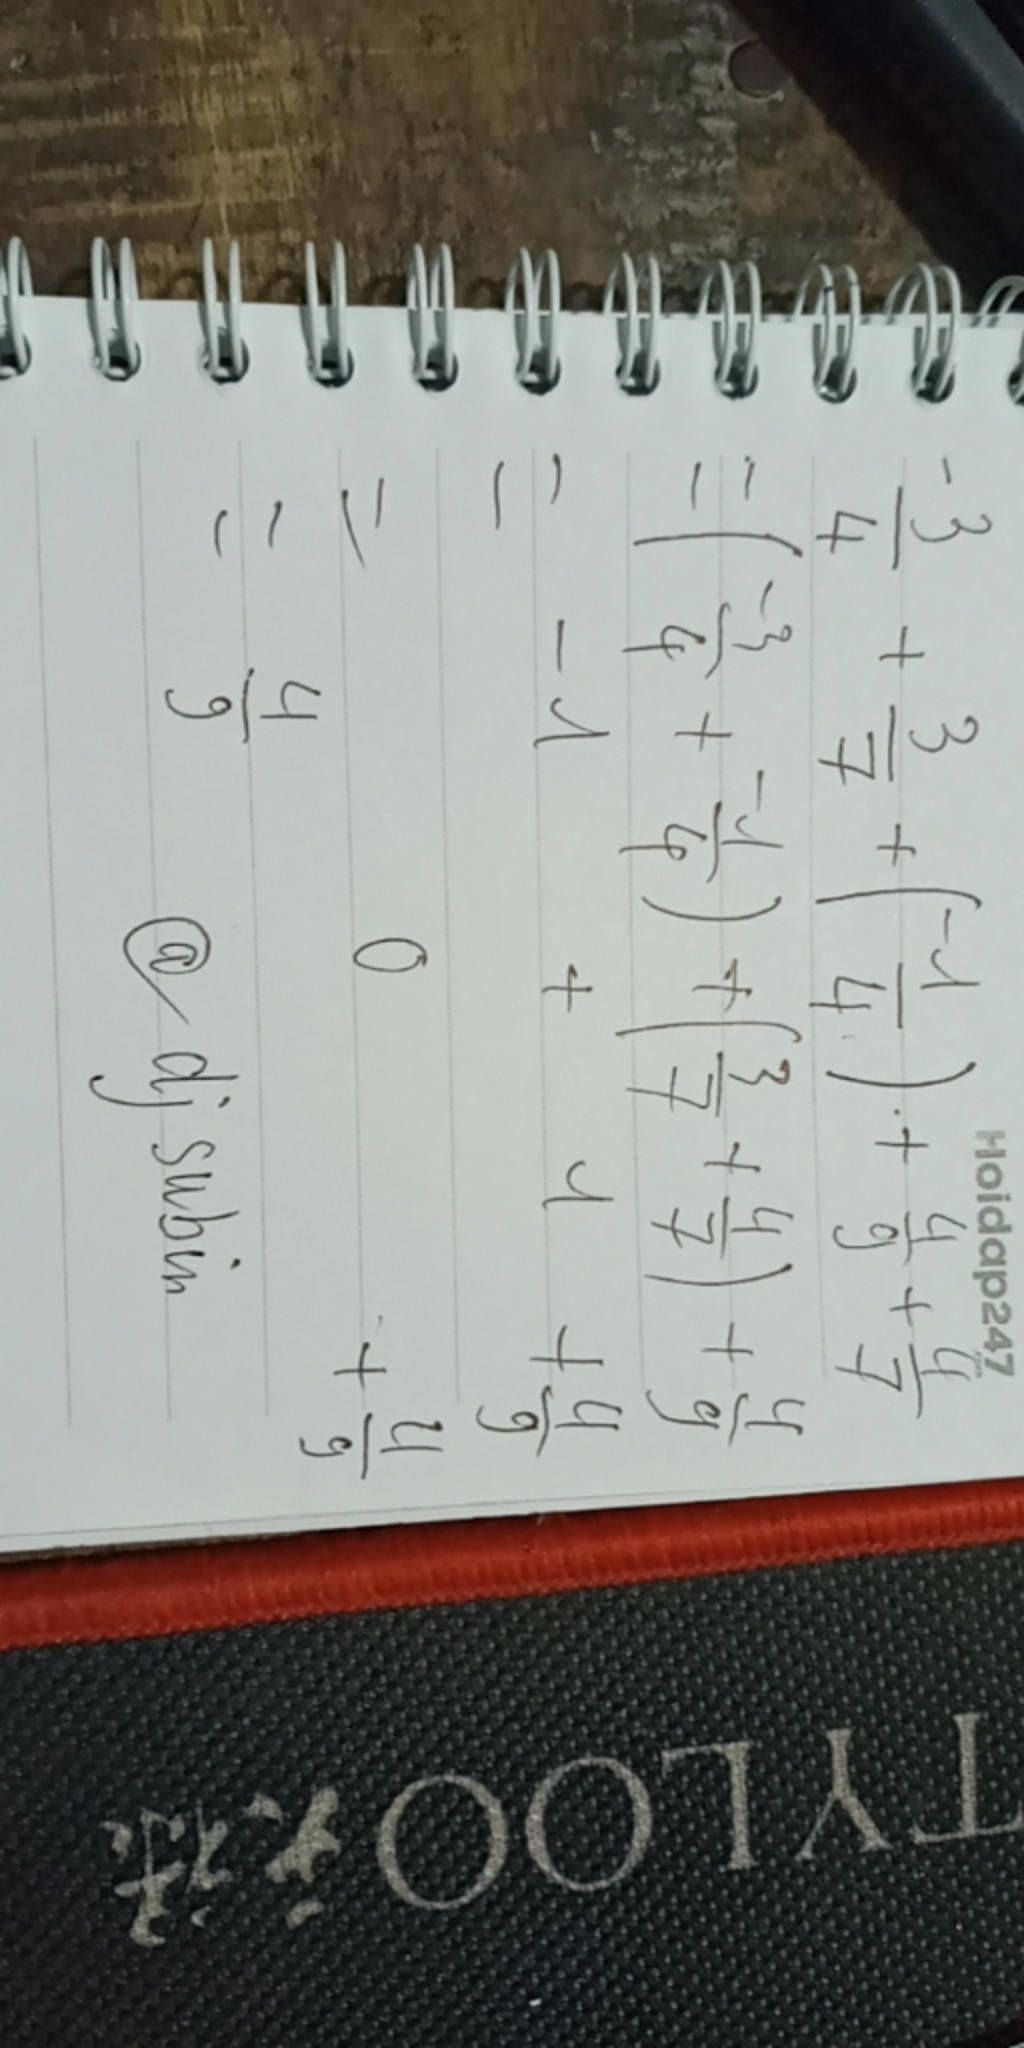 Hoidap247
-3/4 + 3/7 + (-1/4) + 4/9 + 4/7
= (-3/4 + -1/4) + (3/7 + 4/7) + 4/9
= -1 + 1 + 4/9
= 0 + 4/9
= 4/9
@ dj subin
TYLOO